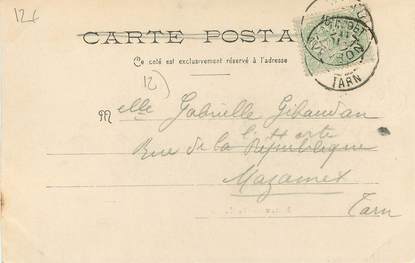 126
CARTE POSTA
Ce côté est exclusivement réservé à l'adresse
12)
Melle Gabrielle Gibaudan
Rue de la République
Mazamet
Tarn
TARN